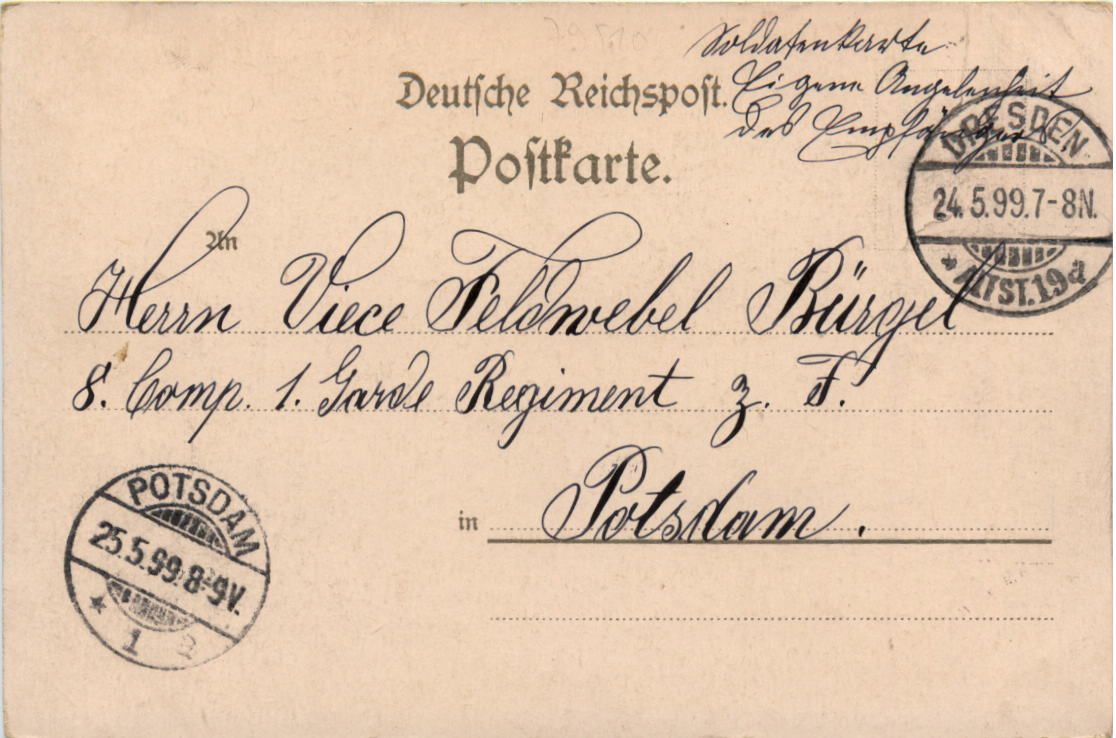 Soldatenkarte
Eigene Angelenheit
des Empfängers
Deutsche Reichspost.
Postkarte.
DRESDEN
24.5.99.7-8N.
* ALTST.19a
An
Herrn Viece Feldwebel Bürgel
8. Comp. 1. Garde Regiment z. F.
in Potsdam.
POTSDAM
25.5.99.8-9V.
* 1